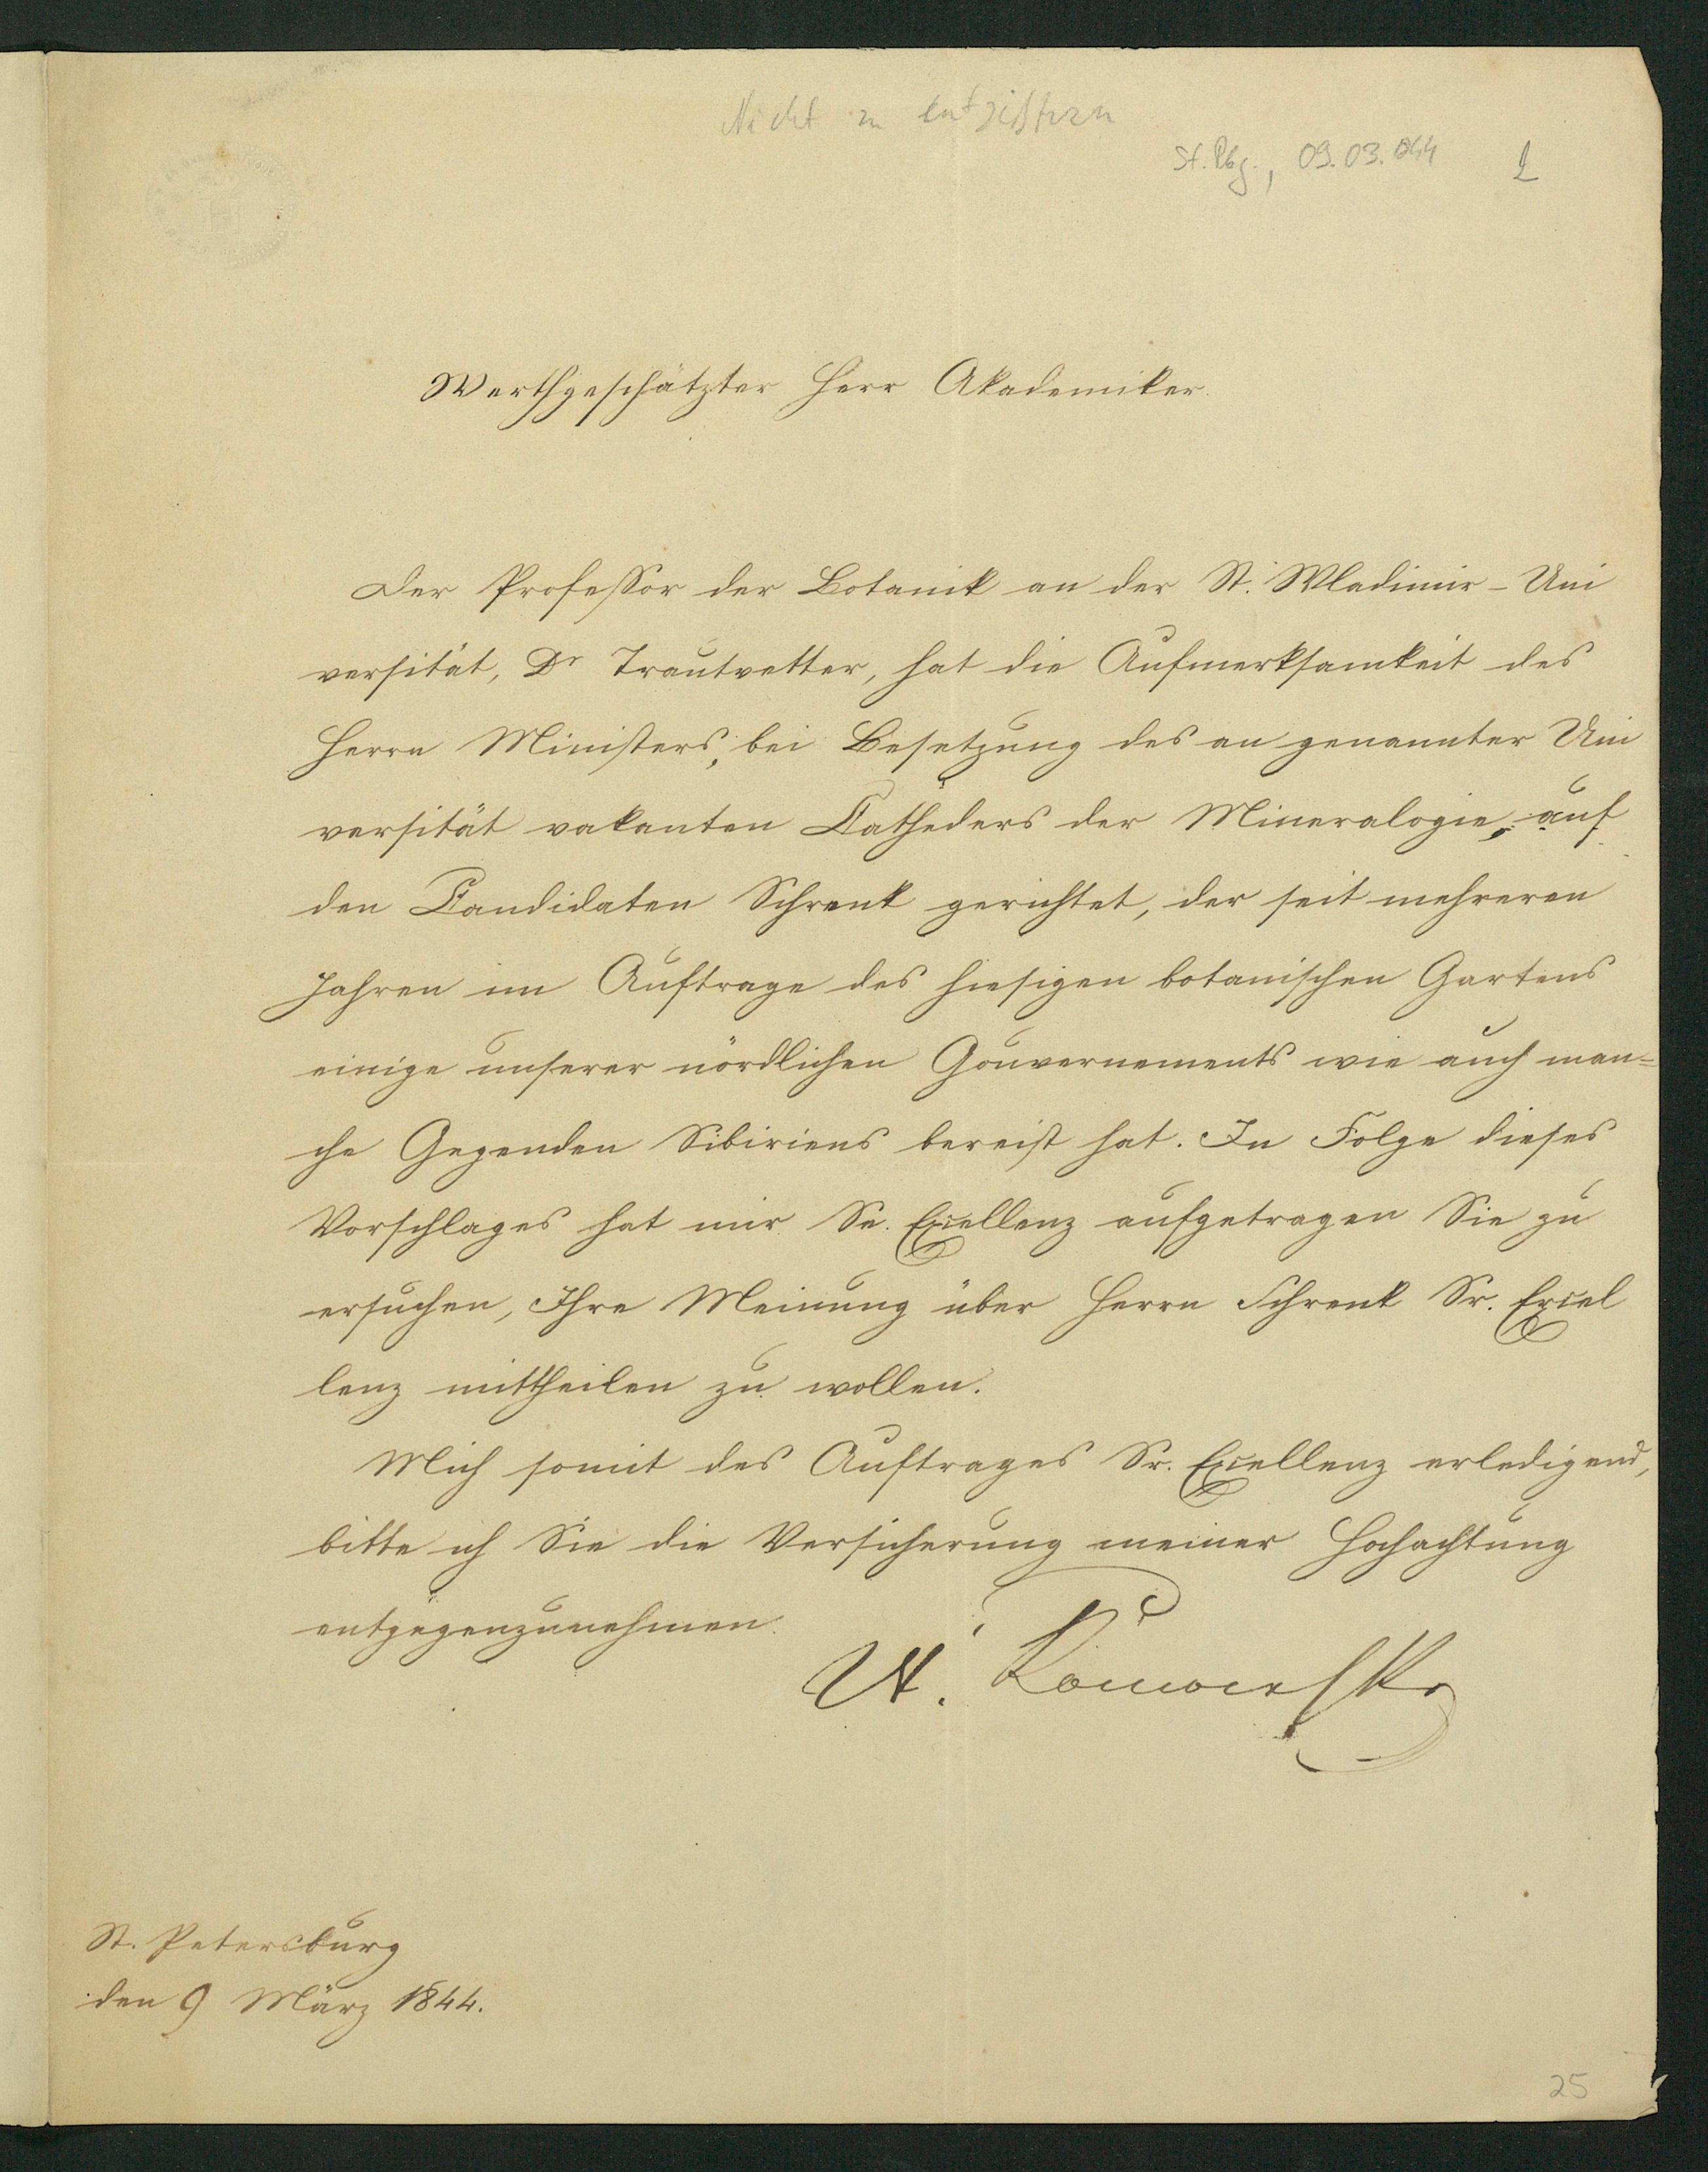 Nicht zu entziffern
St. Pbg., 09.03.844
Werthgeschätzter Herr Akademiker.
Der Professor der Botanik an der St. Wladimir-Uni
versität, Dr Trautvetter, hat die Aufmerksamkeit des
Herrn Ministers, bei Besetzung des an genannter Uni
versität vakanten Catheders der Mineralogie, auf
den Candidaten Schrenk gerichtet, der seit mehreren
Jahren im Auftrage des hiesigen botanischen Gartens
einige unserer nördlichen Gouvernements wie auch man=
che Gegenden Sibiriens bereist hat. In Folge dieses
Vorschlages hat mir Se. Excellenz aufgetragen Sie zu
ersuchen, Ihre Meinung über Herrn Schrenk Sr. Excel
lenz mittheilen zu wollen.
Mich somit des Auftrages Sr. Excellenz erledigend,
bitte ich Sie die Versicherung meiner Hochachtung
entgegenzunehmen.
St. Petersburg
den 9 März 1844.
25